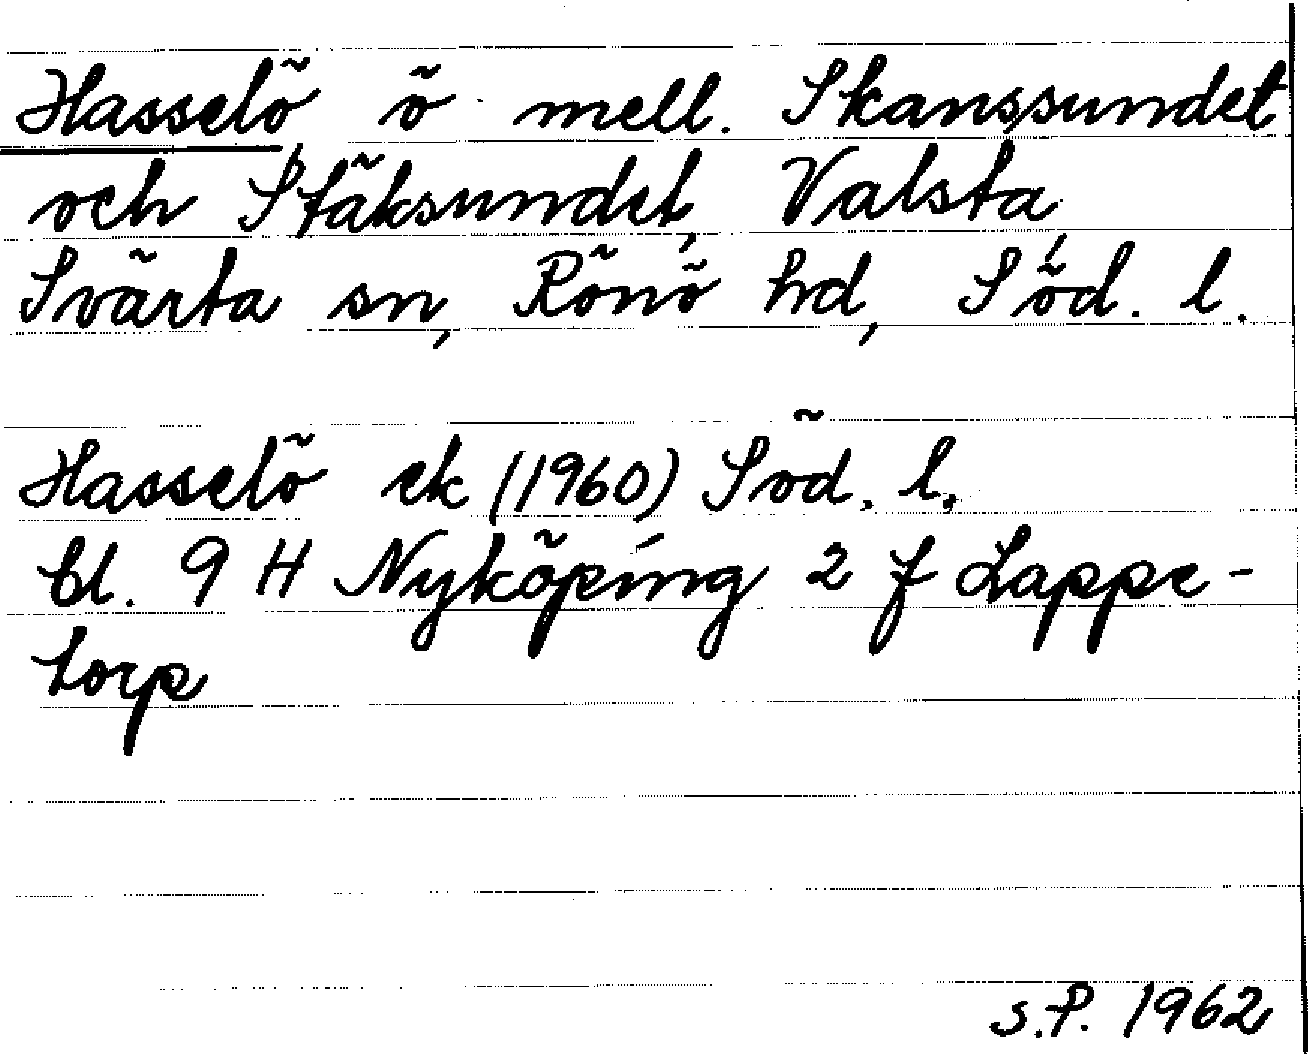 Hasselö ö mell. Skanssundet
och Stäksundet, Valsta,
Svärta sn, Rönö hd, Söd. l.
Hasselö ek (1960) Söd. l.
bl. 9 H Nyköping 2 f Lappe-
torp
S.P. 1962